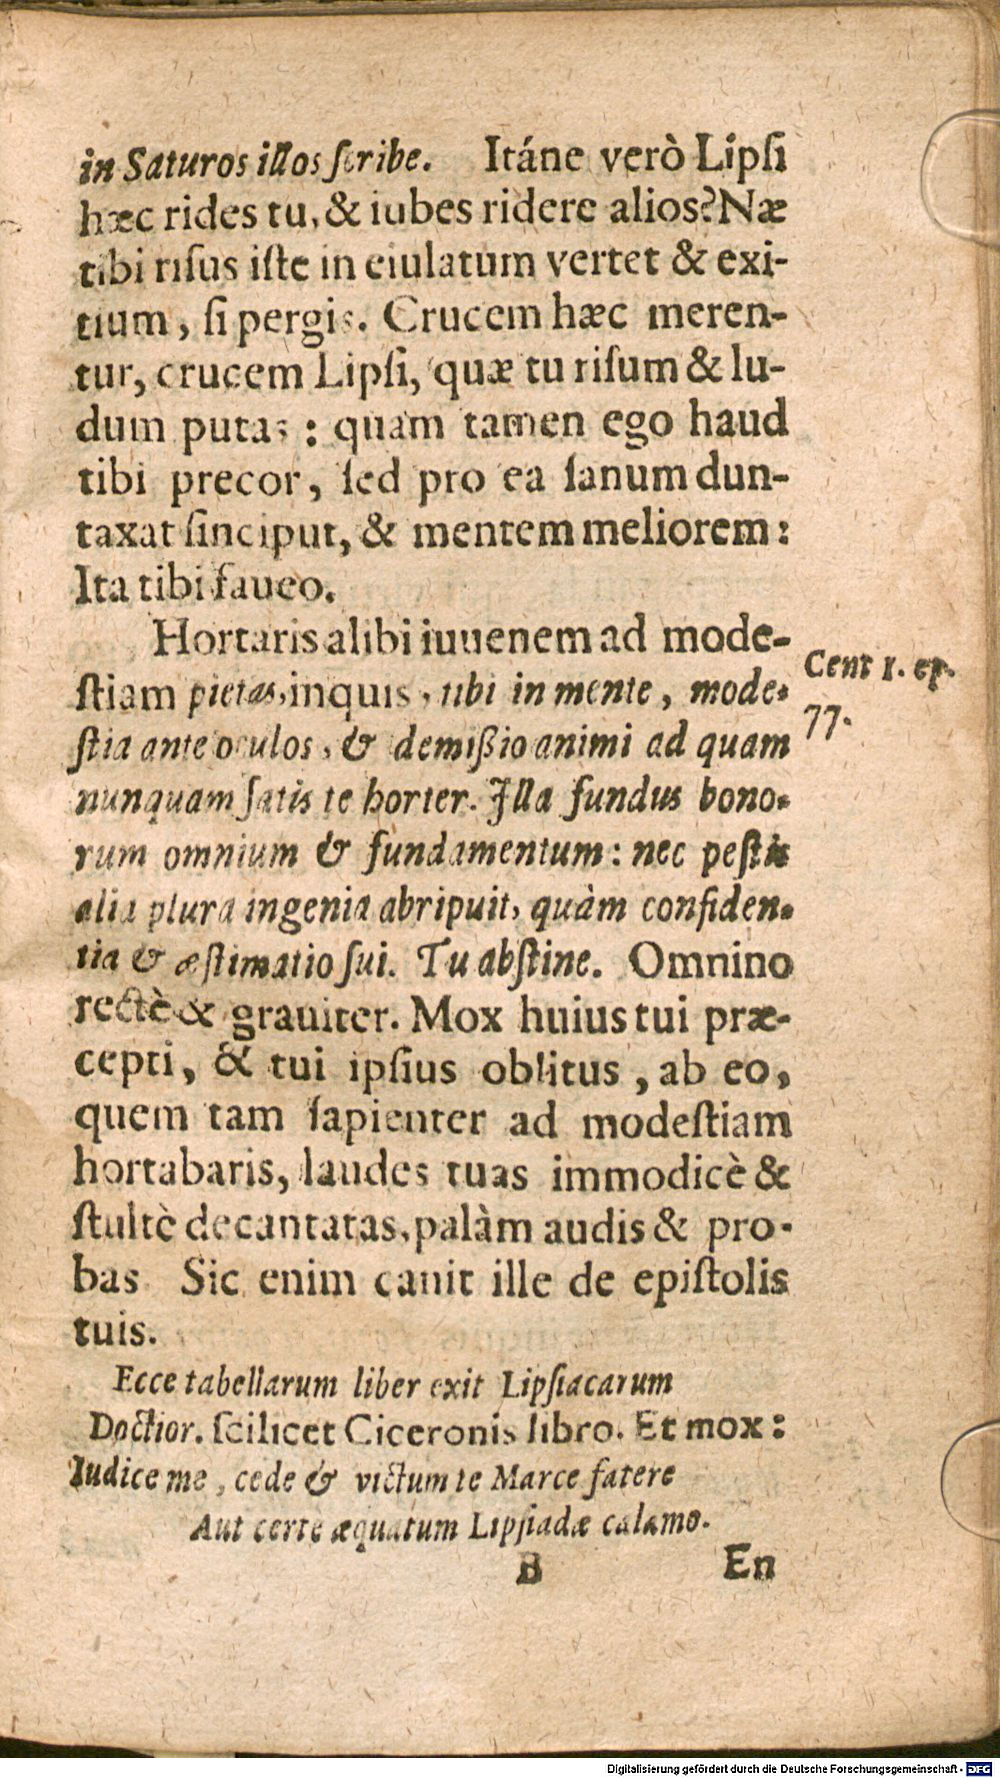 in Saturos illos ſcribe. Itáne verò Lipſi
hæc rides tu, & iubes ridere alios? Næ
tibi riſus iſte in eiulatum vertet & exi-
tium, ſi pergis. Crucem hæc meren-
tur, crucem Lipſi, quæ tu riſum & lu-
dum putas : quam tamen ego haud
tibi precor, ſed pro ea ſanum dun-
taxat ſinciput, & mentem meliorem :
Ita tibi faueo.
Hortaris alibi iuuenem ad mode-
ſtiam pietas, inquis, tibi in mente, mode-
ſtia ante oculos, & demißio animi ad quam
nunquam ſatis te horter. Illa fundus bono-
rum omnium & fundamentum : nec peſtis
alia plura ingenia abripuit, quàm confiden-
tia & æſtimatio ſui. Tu abſtine. Omnino
rectè & grauiter. Mox huius tui præ-
cepti, & tui ipſius oblitus, ab eo,
quem tam ſapienter ad modeſtiam
hortabaris, laudes tuas immodicè &
ſtultè decantatas, palàm audis & pro-
bas Sic enim canit ille de epiſtolis
tuis.
Ecce tabellarum liber exit Lipſiacarum
Doctior. ſcilicet Ciceronis libro. Et mox :
Iudice me, cede & victum te Marce fatere
Aut certe æquatum Lipſiadæ calamo.
B En
Cent 1. ep.
77.
Digitalisierung gefördert durch die Deutsche Forschungsgemeinschaft - DFG